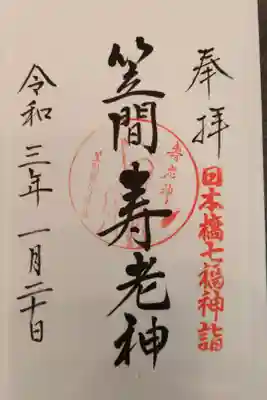 奉拝
日本橋七福神詣
笠間寿老神
寿老神
令和三年一月二十日